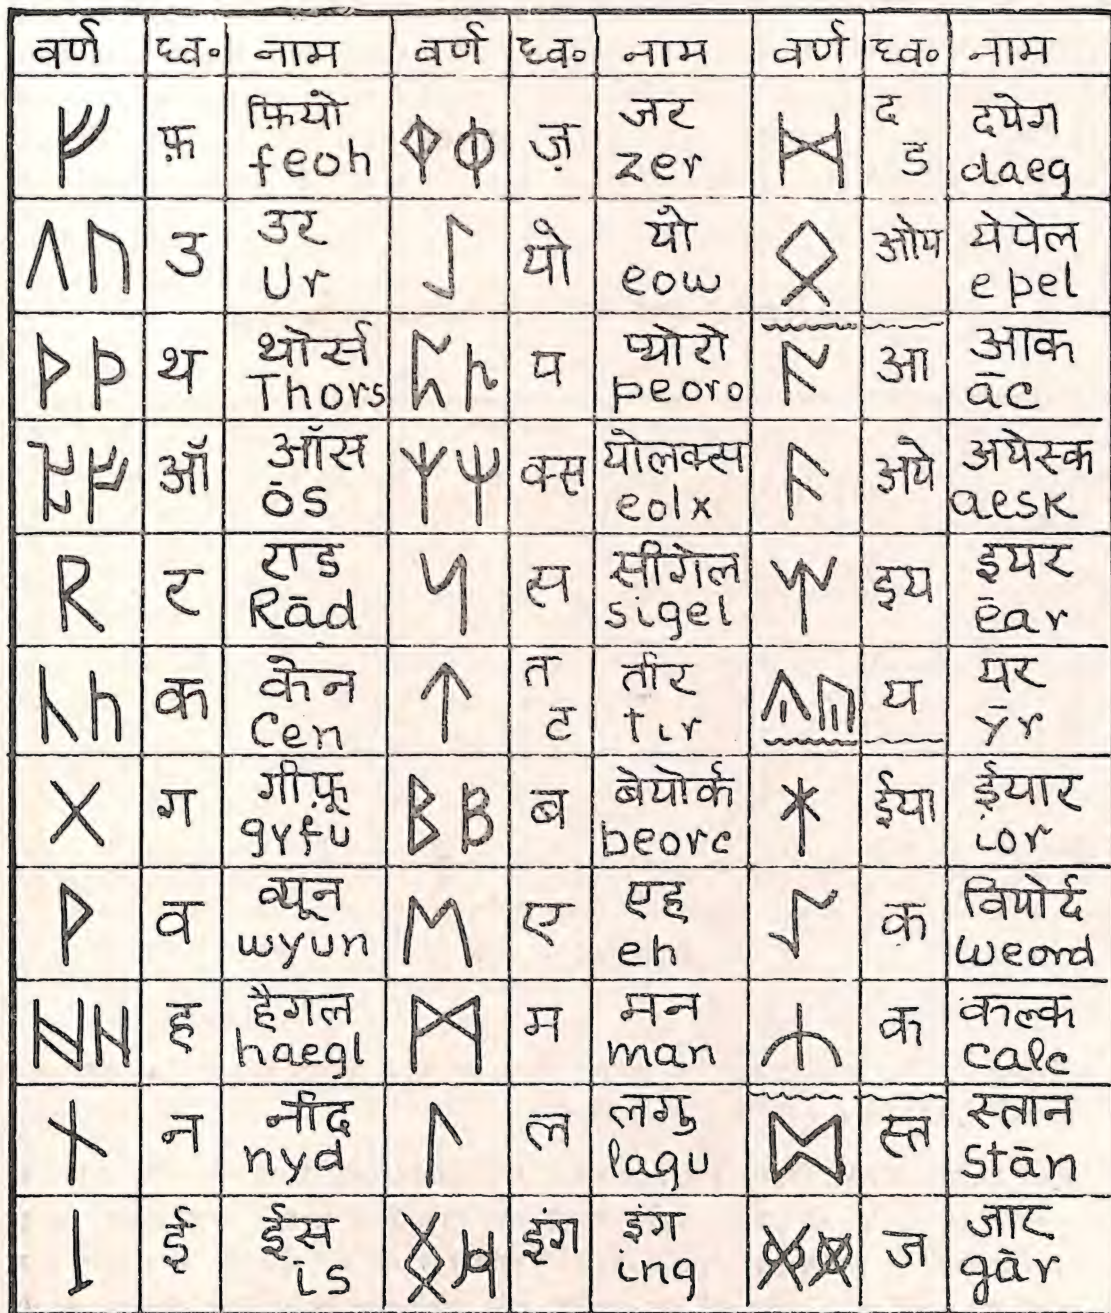 वर्ण ध्व॰ नाम वर्ण ध्व॰ नाम वर्ण ध्व॰ नाम
ᚠ फ़ फ़ियो feoh ᛄ ज़ जर zer ᛞ द ड दयेग daeg
ᚢ उ उर Ur ᛇ यो यो eow ᛟ ओय येपेल epel
ᚦ थ थोर्स Thors ᛈ प प्योरो peoro ᚪ आ आक āc
ᚩ ऑ ऑस ōs ᛉ क्स योलक्स eolx ᚫ अये अयेस्क aesk
ᚱ र राड Rād ᛋ स सीगेल sigel ᛠ इय इयर ēar
ᚳ क केन Cen ᛏ त ट तीर tir ᚣ य यर ȳr
ᚷ ग गीफ़ू gyfu ᛒ ब बेयोर्क beorc ᛡ ईया ईयार ior
ᚹ व व्यून wyun ᛖ ए एह eh ᛢ क़ वियोर्द weord
ᚻ ह हैगल haegl ᛗ म मन man ᛣ क कल्क calc
ᚾ न नीद nyd ᛚ ल लगु lagu ᛥ स्त स्तान Stān
ᛁ ई ईस is ᛝ इंग इंग ing ᚸ ज जार gār